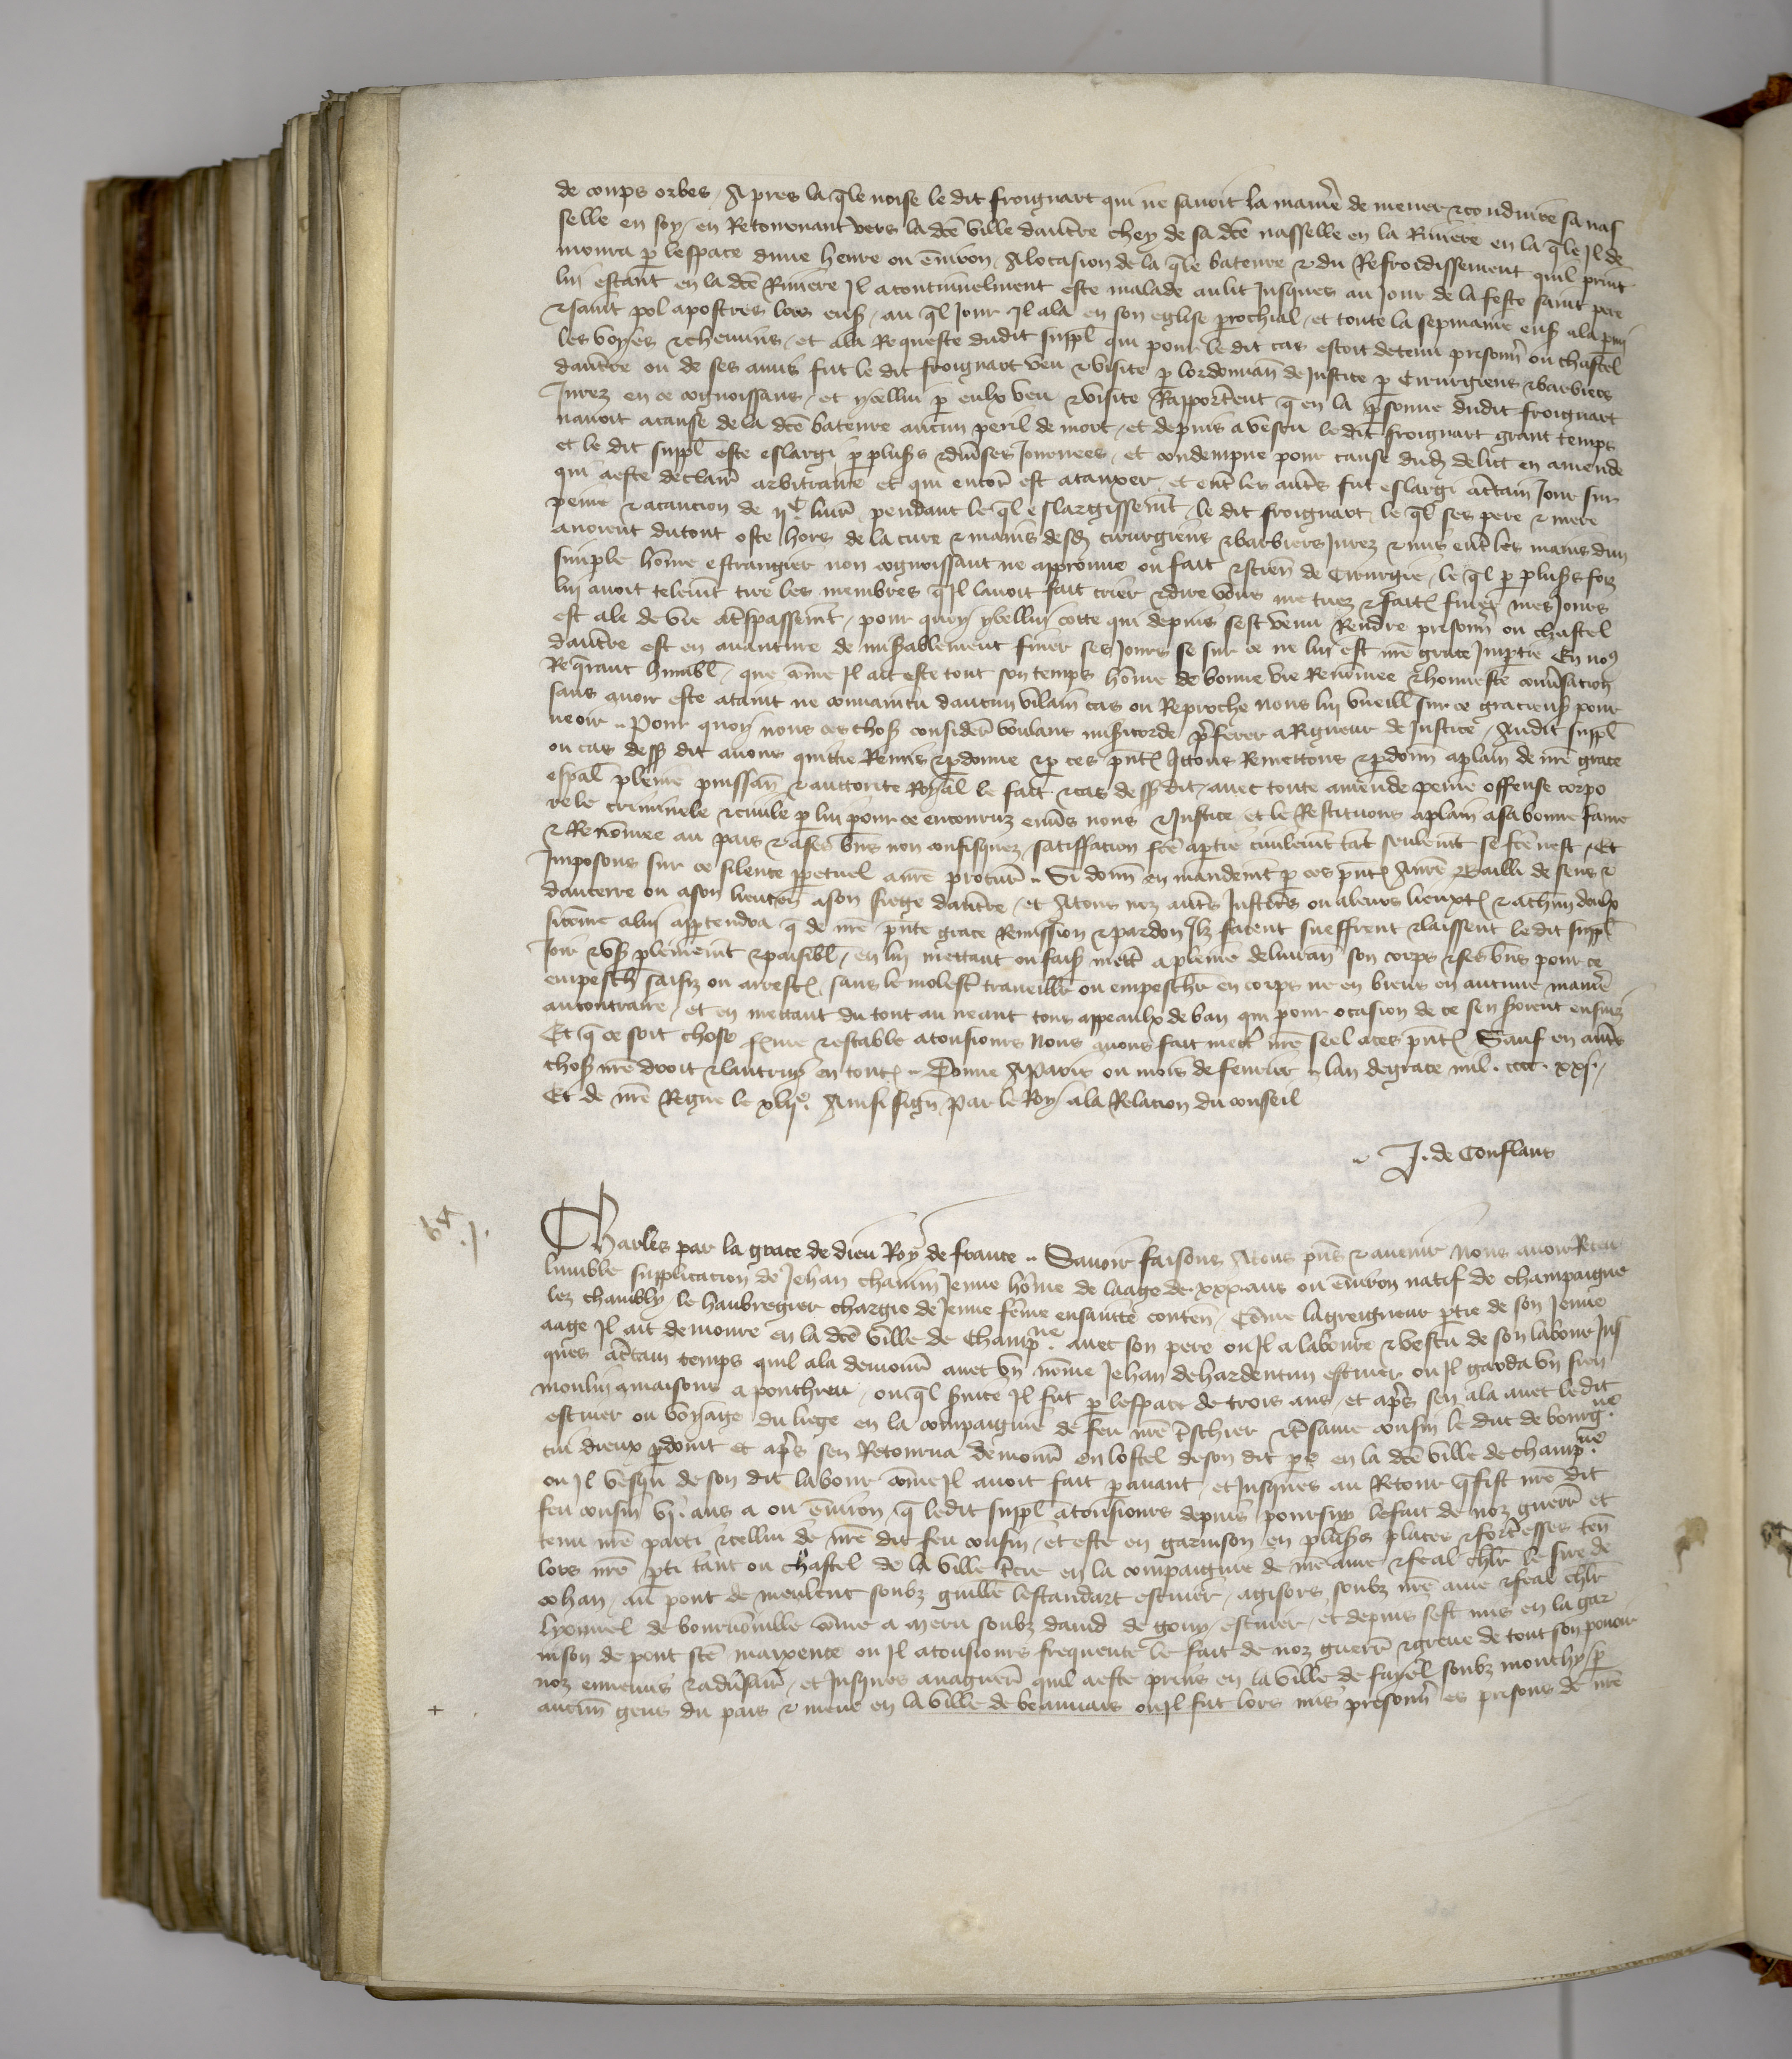 de coups orbes / Apres la qle noise le dit froignart qui ne savoit la manie de mener & conduire sa nas
selle en soy / en Retournant vers la dce ville daucrre chey de sa dce nasselle en la Riviere en la qle Il de
moura p lespace dune heure ou environ / A locasion de la qle bateure & du Refroidissement quil print
lui estant en la dce Riviere Il a continuelment este malade au lit Jusques au Jour de la feste saint pere
& saint pol apostres lors ens / au ql Jour Il ala en son eglise prochial / et toute la sepmaine ens ala pmi
les voyes & chemins / et a la Requeste dudit suppl qui pour le dit cas estoit detenu prisonn ou chastel
daucrre ou de ses amis fut le dit froignart veu & visite p lordonnan de Justice p Cirurgiens & barbiers
Jurez en ce cognoissans / et ycellui p eulx veu & visite Rapportent q en la psonne dudit froignart
navoit a cause de la dce bateure aucun peril de mort / et depuis a vescu le dit froignart grant temps
et le dit suppl este eslargi p plus & diverses Journees / et condempne pour cause dud delict en amende
qui a este declaree arbitraire et qui encor est a tauxer / et ent les autres fut eslargi a ctain Jour sur
peine & a caucion de ijc livr / pendant le ql eslargissement / le dit froignart / le ql ses pere & mere
avoient du tout oste hors de la cure & mains desd cirurgiens & barbiers Jurez & mis ent les mains dun
simple home estrangier non cognoissant ne approuve ou fait & scien de Cirurgie / le ql p plus foiz
lui avoit telemt tire les membres qIl lavoit fait crier & dire vous me tuez & faites finer mes Jours
est ale de vie a tspassemt / pour quoy ycellui cotte qui depuis sest venu Rendre prisonn ou chastel
daucrre est en avanture de misablement finer ses Jours se sur ce ne lui est nre grace Impartie En nous
Reqrant humbl / que come Il ait este tout son temps home de bonne vie Renomee & honneste conversacion
sans avoir este ataint ne convaincu daucun vilain cas ou Reproche nous lui vueill sur ce gracieus pour
veoir .. Pour quoy nous ces chos consider voulans misicorde preferer a Rigueur de Justice / Audit suppl
ou cas dess dit avons quittie Remis & pdonne & p ces pntes quittons Remettons & pdonn a plain de nre grace
espal pleine puissan & auctorite Royal le fait & cas dess dit / avec toute amende peine offense corpo
rele criminele & civile p lui pour ce encouruz envers nous & Justice et le Restituons a plain a sa bonne fame
& Renomee au pais & a ses bns non confisquez / satisfacion fce a ptie civilemt tat seulemt se fce nest / Et
Imposons sur ce silence ppetuel a nre procur .. Si donn en mandemt p ces pntes A nre Bailli de sens &
daucerre ou a son lieuten a son siege daucrre / et A tous noz autrs Justiciers ou a leurs lieuxt & a chun deulx
sicome a lui appartendra q de nre pnte grace Remission & pardon Ilz facent sueffrent & laissent ledit suppl
Joir & us plenemt & paisibl / en lui mettant ou fais mett a pleine delivran son corps & ses bns pour ce
empesch saisiz ou arrestez / sans le molest traveiller ou empescher en corps ne en biens en aucune manier
au contraire / et en mettant du tout au neant tous appeaulx de ban qui pour ocasion de ce sen seroient ensuiz
Et q ce soit chose ferme & estable a tousiours Nous avons fait mett nre seel a ces pntes Sauf en autrs
chos nre droit & lautruy en toutes .. Donne A Paris ou mois de fevrier .. lan de grace mil . cccc . xxj . /
Et de nre Regne le xlije . Ainsi sign Par le Roy a la Relacion du conseil
.. J. de Conflans
Charles par la grace de dieu Roy de france .. Savoir faisons A tous pns & avenir Nous avoir Receu
lumble supplicacion de Jehan chanin Jeune home de laage de xxx ans ou environ natif de champaigne
lez chambly / le haubregier chargie de Jeune feme ensainte conten / Come la greigneur ptie de son Jeune
aage Il ait demoure en la dce ville de Champne . avec son pere ou Il a laboure & vescu de son labour Jus
ques a ctain temps quil ala demourer avec un nome Jehan de hardentun escuier ou Il garda un sien
moulin & maisons a ponthieu / ou ql service Il fut p lespace de trois ans / et apres sen ala avec le dit
escuier ou voyage du liege en la compaignie de feu nre treschier & tresame cousin le duc de bourgne .
cui dieux pdoint et apres sen Retourna demourer en lostel de son dit pe en la dce ville de champne .
ou Il vesqui de son dit labour come Il avoit fait p avant / et Jusques au Retour q fist nre dit
feu cousin vj . ans a ou environ / q ledit suppl a tousiours depuis poursuy le fait de noz guerres et
tenu nre parti & cellui de nre dit feu cousin / et este en garnison en plus places & forteresses ten
lors nre pti tant ou chastel de la ville en la compaignie de nre ame & feal chlr le sire de
cohan / au pont de meulent soubz guille lestandart escuier / a gisors soubz nre ame & feal chlr
lyonnel de bournonville come a meru soubz david de gouy / escuier / et depuis sest mis en la gar
nison de pont ste maxence ou Il a tousiours frequente le fait de noz guerres & greve de tout son povoir
noz ennemis & adversaires / et Jusques a naguerr quil a este prins en la ville de fayel soubz monchy / p
aucuns gens du pais & mene en la ville de beauvais ou Il fut lors mis prisonn es prisons de nre